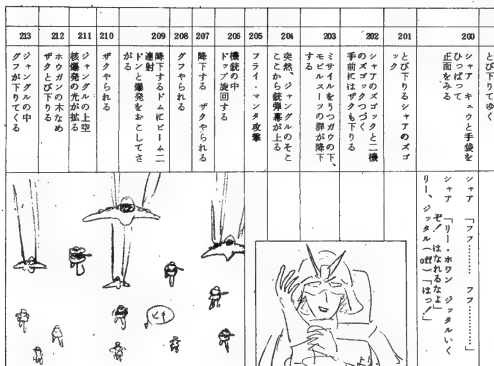 とび下りてゆく
200
シャア　キュウと手袋を
ひっぱって
正面をみる
シャア「フフ………　フフ…………」
シャア「リー・ホワン　ジッタルいく
ぞ！　はなれるなよ」
リー、ジッタル(off)「はっ！」
201
とび下りるシャアのズゴ
ック
202
シャアのズゴックと二機
のズゴックつづく
手前にはザクも下りる
203
ミサイルをうつガウの下、
モビルスーツの群が降下
する
204
突然、ジャングルのそこ
ここから銃弾幕が上る
205
フライ・マンタ攻撃
206
機銃の中
ドップ旋回する
207
降下する　ザクやられる
208
グフやられる
209
降下するドムにビーム二
連射
ドンと爆発をおこしてさ
がる
210
ザクやられる
211
ジャングルの上空
核爆発の光が拡る
212
ホウガンの木なめ
ザクとび下りる
213
ジャングルの中
グフが下りてくる
ヒキ